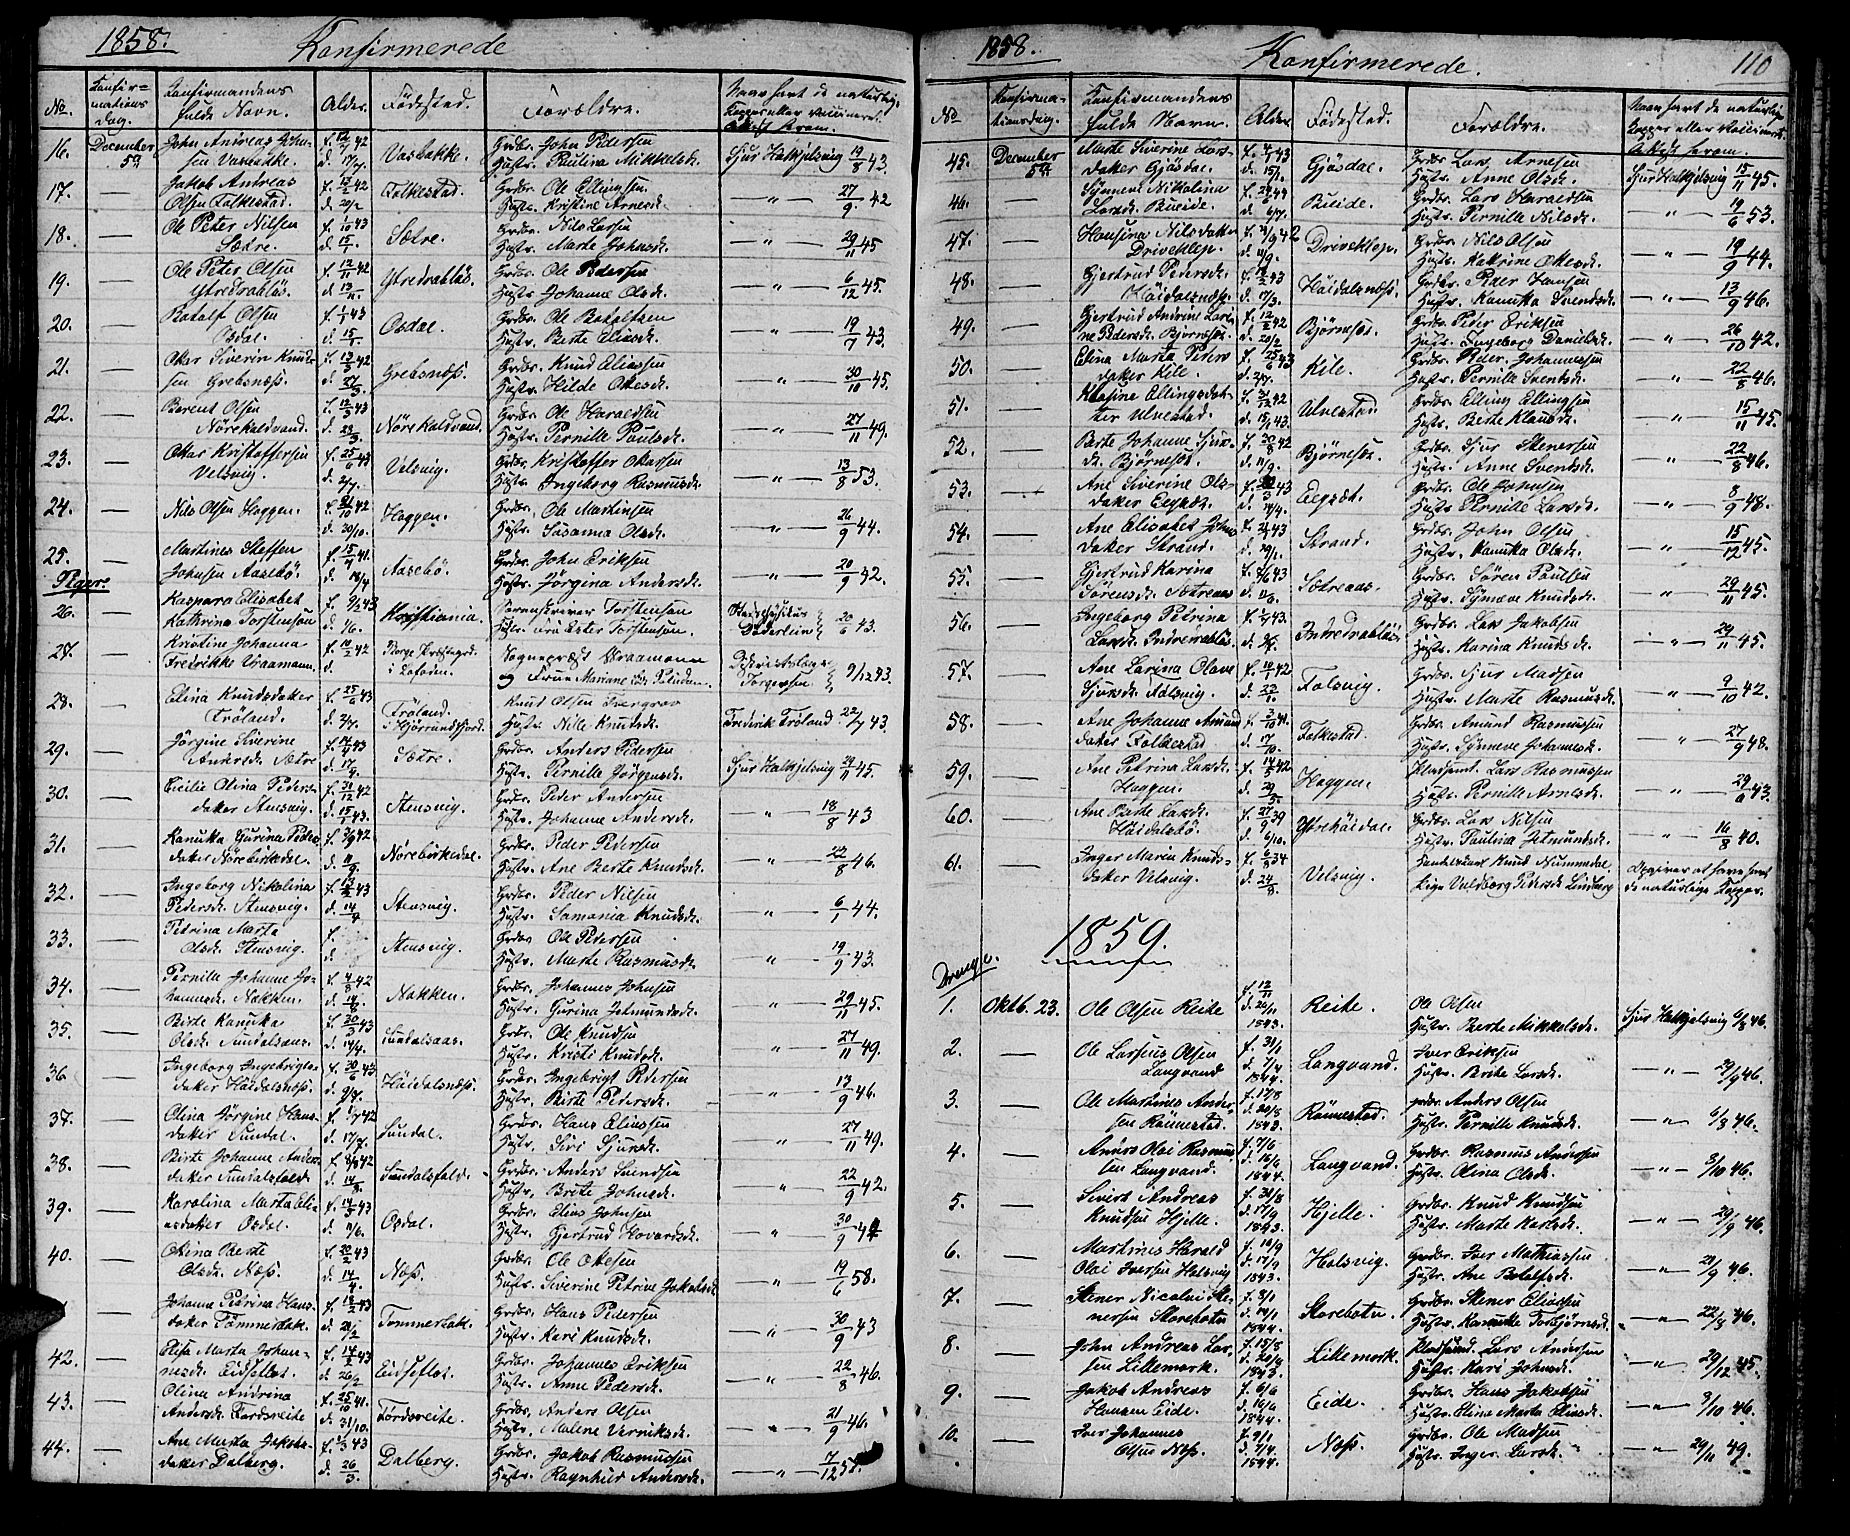 1858. Konfirmerede
No. Konfirmations Dag. Konfirmandens fulde Navn. Alder. Födested. Forældre.
16. December 5te John Andreas Johnsen Vasbakke. f. 12/7 42 d. 17/7. Vasbakke. Grdbr. John Pedersen Hustr. Paulina Mikkelsdr. Sjur Halkjelsvig 19/8 43.
17. — Jakob Andreas Olsen Folkestad. f. 13/2 42 d. 20/2 Folkestad. Grdbr. Ole Ellingsen Hustr. Kristine Arnesdr. — " — 27/9 42
18. — Ole Peter Nilsen Sætre. f. 1/10 43 d. 15/1. Sætre. Grdbr. Nils Larsen Hustr. Marte Johnsdr. — " — 29/11 45
19. — Ole Peter Olsen Ytredrabløs. f. 12/11 42 d. 13/11. Ytredrabløs. Grdbr. Ole Pedersen Hustr. Johanne Olsdr. — " — 6/12 45.
20. — Botolf Olsen Osdal. f. 1/1 43 d. 15/1. Osdal. Grdbr. Ole Botolfsen Hustr. Berte Eliasdr. — " — 19/7 43.
21. — Severin Knudsen Grebsnæss. f. 13/5 42 d. 27/3. Grebsnæss. Grdbr. Knud Eliassen Hustr. Hilde Ottesdr. — " — 30/10 45.
22. — Berent Olsen Nörekaldvand. f. 12/3 43 d. 23/3. Nörekaldvand. Grdbr. Ole Haraldsen Hustr. Pernille Paulsdr. — " — 27/11 49.
23. — Kristoffersen Velsvig. f. 25/6 43 d. 2/7. Velsvig. Grdbr. Kristoffer Hustr. Ingeborg Rasmusdr. — " — 13/8 53.
24. — Nils Olsen Haggen. f. 21/10 42 d. 30/10. Haggen. Grdbr. Ole Martinsen Hustr. Susanna Olsdr. — " — 26/9 44.
25. — Martines Steffen Johnsen Aasebö. f. 15/7 41. d. 18/4 Aasebö. Grdbr. John Eriksen Hustr. Jörgina Andersdr. — " — 20/9 42.
Piger.
26. — Kaspara Elisabet Kathrina Torstensön f. 9/2 43 d. 1/6. Kristiania. Sorenskriver Torstensen Hustr. Ester Torstensen. 20/6 43.
27. — Kristine Johanna Fredrikke Vraamann. f. 10/2 42 d. Borge Prestegrd. i Lofoden. Sogneprest Vraamann og Frue Mariane Paludan. Jörgensen 9/12 43.
28. — Elina Knudsdater Tröland. f. 25/6 43 d. 2/7. Tröland. i Hjörrundfjord. Knud Olsen Hustr. Nille Knutsdr. Frederik Tröland 22/7 43.
29. — Jörgine Siverine Andersdr. Sætre f. 14/4 43 d. 17/4. Sætre. Grdbr. Anders Pedersen Hustr. Pernille Jörgensdr. Sjur Halkjelsvig 29/11 45.
30. — Cicilie Olina Pedersdater Stensvig. f. 31/12 42 d. 15/1 43. Stensvig. Grdbr. Peder Andersen Hustr. Johanne Andersdr. — " — 18/8 43
31. — Kanutta Gurina Pedersdater Nörebirkedal. f. 3/9 42 d. 11/9. Nörebirkedal. Grdbr. Peder Pedersen Hustr. Ane Berte Knudsdr. — " — 22/8 46.
32. — Ingeborg Nikolina Pedersdr. Stensvig. 43 d. 14/4 Stensvig. Grdbr. Peder Nilsen Hustr. Samania Knudsdr. — " — 6/1 44.
33. — Petrina Marta Olsdr. Stensvig. f. d. Stensvig. Grdbr. Ole Pedersen Hustr. Marte Rasmusdr. — " — 19/9 43.
34. — Pernille Johanne Johannesdr. Nakken. f. 4/8 42 d. 14/8 Nakken. Grdbr. Johannes Johnsen Hustr. Gurina Jetmundsdr. — " — 29/11 45.
35. — Birte Kanutta Olsdr. Sundalsaas. f. 30/3 43 d. 14/4. Sundalsaas. Grdbr. Ole Knudsen Hustr. Kristi Knudsdr. — " — 27/11 49.
36. — Ingeborg Ingebrigtsdater Häidalsnæss. f. 30/6 43 d. 9/7. Häidalsnæss. Grdbr. Ingebrigt Pedersen Hustr. Birte Pedersdr. — " — 13/9 46.
37. — Olina Jörgine Hansdater Sundal. f. 1/7 42 d. 17/7. Sundal. Grdbr. Hans Eliassen Hustr. Siri Sjursdr. — " — 27/11 49.
38. — Birte Johanne Andersdater Sundalsfald. f. 8/8 42 d. 14/8. Sundalsfald. Grdbr. Anders Sundsen Hustr. Brite Johnsdr. — " — 22/9 42.
39. — Karolina Marta Eliasdater Osdal. f. 14/5 43 d. 11/6. Osdal. Grdbr. Elias Johnsen Hustr. Gjertrud Hovardsdr. — " — 30/9 44
40. — Otina Berte Olsdr. Næss. f. 20/2 43 d. 14/4. Næss. Grdbr. Ole Ottesen Hustr. Siverine Petrine Jakobsdr. — " — 19/6 58.
— Johanne Petrina Hansdater Tömmerbak. f. 12/2 43 d. 21/2 Tömmerbak. Grdbr. Hans Pedersen Hustr. Kari Knudsdr. — " — 30/9 43
42. — Olise Marta Johannesdr. Eidseflot. f. 14/2 43 d. 26/2 Eidseflot. Grdbr. Johannes Eriksen Hustr. Anne Pedersdr. — " — 22/8 46.
43. — Olina Andrina Andersdr. Fördsreite f. 25/10 41. d. 31/10. Fördsreite. Grdbr. Anders Olsen Hustr. Malene Verniksdr. — " — 21/9 46.
44. — Ane Marta Jakobsdater Dalberg. f. 1/3 43 d. 26/3. Dalberg. Grdbr. Jakob Rasmussen Hustr. Ragnhild Andersdr. — " — 7/12 58.
1858. Konfirmerede. 110
No Konfirmationsdag. Konfirmandens fulde Navn. Alder. Födested. Forældre. Naar havt de naturlige Kopper eller Vaccineret. Attest herom.
45. December 5te Marte Siverine Larsdater Gjösdal. f. 4/1 43 d. 15/1. Gjösdal. Grdbr. Lars Arnesen Hustr. Anne Olsdr. Sjur Halkjelsvig 15/11 45.
46. — Synneve Nikolina Larsdr. Bueide. d. 6/7. Bueide. Grdbr. Lars Haraldsen Hustr. Pernille Nilsdr. — " — 19/6 53.
47. — Hansina Nilsdater Driveklep. 42 d. 11/9. Driveklep. Grdbr. Nils Olsen Hustr. Katrine Ottesdr. — " — 19/9 44.
48. — Gjertrud Pedersdr. Häidalsnæss. 43 d. 17/3. Häidalsnæss. Grdbr. Peder Hansen Hustr. Kanutta Svendsdr. — " — 13/9 46.
49. — Gjertrud Andrine Larine Pedersdr. Björnesæt. f. 12/2 42 d. 20/2 Björnesæt. Grdbr. Peder Eriksen Hustr. Ingeborg Danielsdr. — " — 26/10 42.
50. — Elina Marta Pedersdater Kile. f. 25/6 43 d. 2/7. Kile. Grdbr. Peder Johannessen Hustr. Pernille Sventsdr. — " — 22/5 46.
51. — Klasine Ellingsdatter Ulvestad. 42 d. 15/1 43. Ulvestad. Grdbr. Elling Ellingsen Hustr. Berte Klausdr. — " — 15/11 45.
52. — Berte Johanne Sjursdr. Björnesæt. f. 30/8 42 d. 11/9. Björnesæt. Grdbr. Sjur Stenersen Hustr. Anne Sventsdr. — " — 22/8 46.
53. — Ane Siverine Olsdater Eegsæt. 43 d. 14/4. Eegsæt. Grdbr. Ole Johnsen Hustr. Pernille Larsdr. — " — 8/9 48.
54. — Ane Elisabet Johnsdater Strand. 43 d. 29/1. Strand. Grdbr. John Olsen Hustr. Kanutta Olsdr. — " — 15/12 45.
55. — Gjertrud Karina Sörensdr. Sætreaas 43 Sætreaas. Grdbr. Sören Paulsen Hustr. Synneve Knudsdr. — " — 29/11 45.
56. — Ingeborg Petrina Larsdr. Indredrabløs 43 Indredrabløs. Grdbr. Lars Jakobsen Hustr. Karina Knudsdr. — " — 29/11 45.
57. — Ane Larina Olave Sjursdr. Aalsvig. f. 10/1 42 d. 23/1. Folsvig. Grdbr. Sjur Madsen Hustr. Marte Rasmusdr. — " — 9/10 42.
58. — Ane Johanne Amundsdater Folkestad f. 3/10 41. d. 17/10. Folkestad. Grdbr. Amund Rasmussen Hustr. Synneve Johannesdr. — " — 27/9 48.
59. — Ane Petrina Larsdr. Haggen. f. 14/5 42. d. 29/5. Haggen. Pladsmd. Lars Rasmussen Hustr. Pernille Arnesdr. — " — 29/6 43.
60. — Ane Berte Larsdr. Häidalsbö. f. 27/9 39 d. 6/10. Ytrehäidal. Grdbr. Lars Nilsen Hustr. Paulina Jetmundsdr. — " — 16/8 40.
61. — Inger Maria Knudsdater Velsvig. f. 6/8 34 d. 24/8. Velsvig. Knud Nummedal Pige Valdborg Pedersdr. Lindberg Opgiver at have havt de naturlige Kopper.
1859.
Drenge.
1. Oktb. 23. Ole Olsen Reite f. 12/11 d. 26/11 1843. Reite. Ole Olsen Hustr. Berte Mikkelsdr. Sjur Halkjelsvig 6/8 46.
2. — Ole Larsius Olsen Langvand f. 31/1 d. 7/4 1844. Langvand. Iver Eriksen Hustr. Brite Larsdr. — " — 29/9 46.
3. — Ole Martinus Andersen Rännestad f. 17/8 d. 20/8 1843. Rännestad. Grdbr. Anders Olsen Hustr. Pernille Knudsdr. — " — 6/8 46.
4. — Anders Olai Rasmussen Langvand. f. 7/6 d. 16/6 1844. Langvand. Grdbr. Rasmus Andersen Hustr. Olina Olsdr. — " — 3/10 46.
5. — Sivert Andreas Knudsen Hjelle. f. 31/8 d. 17/9 1843. Hjelle. Grdbr. Knud Knudsen Hustr. Marte Karlsdr. — " — 29/9 46.
6. — Martinus Harald Olai Iversen Halsvig f. 10/9 d. 17/9 1843. Halsvig. Grdbr. Iver Mathiassen Hustr. Ane Botolfsdr. — " — 21/9 46.
7. — Stener Nicolai Stenersen Storebotn f. 8/1 d. 14/1 1844. Storebotn. Grdbr. Stener Eliassen Hustr. Kanutte Torbjörnsdr. — " — 22/8 46.
8. — John Andreas Larsen Lillemork. f. 15/8 d. 20/8 1843. Lillemork. Lars Andersen Hustr. Kari Johnsdr. — " — 29/12 45.
9. — Jakob Andreas Hansen Eide. f. 6/6 d. 16/6 1844. Eide. Grdbr. Hans Jakobsen Hustr. Elina Marta Eliasdr. — " — 3/10 46.
10. — Iver Johannes Olsen Næss. f. 9/1 d. 7/4 1844. Næss. Grdbr. Ole Madsen Hustr. Inger Larsdr. — " — 29/11 49.